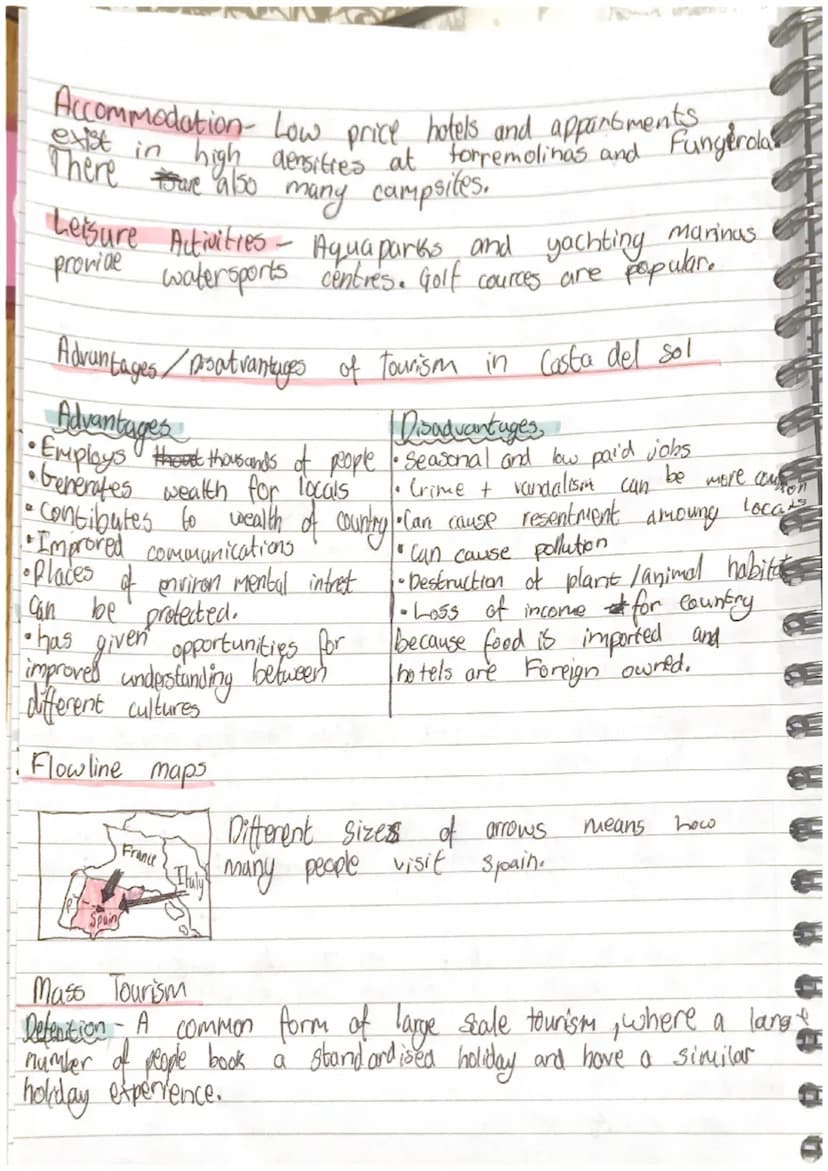 Accommodation- Low price hotels and appartments
exist in high densities at torremolinas and Fungerola
There are also many campsites.
Leisure Activities - Aquaparks and yachting marinas
provide watersports centres. Golf cources are popular.
Advantages/Disatvantages of Tourism in Costa del sol
Advantages
• Employs thousands of people
• Generates wealth for locals
• Contibutes to wealth of country
• Improved communications
• Places of environmental intret
can be protected.
• has given opportunities for
improved understanding between
different cultures
Disadvantages
• Seasonal and low paid jobs
• Crime + vandalism can be more common
• Can cause resentment amoung locals
• Can cause pollution
• Destruction of plant/animal habitat
• Loss of income for country
because food is imported and
hotels are Foreign owned.
Flowline maps
France
Italy
P
Spain
Different sizes of arrows means how
many people visit Spain.
Mass Tourism
Defenition - A common form of large scale tourism, where a large
number of people book a standardised holiday and have a similar
holiday experience.